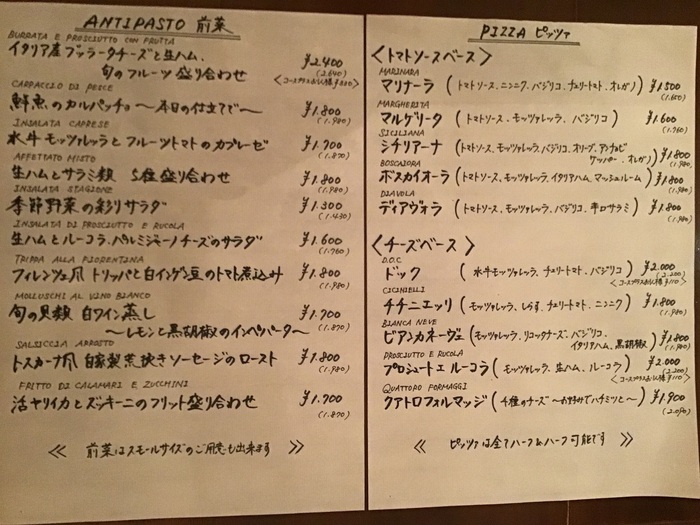 ANTIPASTO 前菜
BURRATA E PROSCIUTTO CON FRUTTA
イタリア産ブッラータチーズと生ハム、
旬のフルーツ盛り合わせ ¥2.400
(2.640)
CARPACCIO DI PESCE
鮮魚のカルパッチョ〜本日の仕立てで〜 ¥1.800
(1.980)
INSALATA CAPRESE
水牛モッツァレッラとフルーツトマトのカプレーゼ ¥1.700
(1.870)
AFFETTATO MISTO
生ハムとサラミ類 5種盛り合わせ ¥1.800
(1.980)
INSALATA STAGIONE
季節野菜の彩りサラダ ¥1.300
(1.430)
INSALATA DI PROSCIUTTO E RUCOLA
生ハムとルーコラ、パルミジャーノチーズのサラダ ¥1.600
(1.760)
TRIPPA ALLA FIORENTINA
フィレンツェ風 トリッパと白インゲン豆のトマト煮込み ¥1.800
(1.980)
MOLLUSCHI AL VINO BIANCO
旬の貝類 白ワイン蒸し ¥1.700
〜レモンと黒胡椒のインペパータ〜 (1.870)
SALSICCIA ARROSTO
トスカーナ風 自家製荒挽きソーセージのロースト ¥1.800
(1.980)
FRITTO DI CALAMARI E ZUCCHINI
活ヤリイカとズッキーニのフリット盛り合わせ ¥1.700
(1.870)
≪ 前菜はスモールサイズのご用意も出来ます ≫
PIZZA ピッツァ
<トマトソースベース>
MARINARA
マリナーラ (トマトソース、ニンニク、バジリコ、チェリートマト、オレガノ) ¥1.500
(1.650)
MARGHERITA
マルゲリータ (トマトソース、モッツァレッラ、バジリコ) ¥1.600
(1.760)
SICILIANA
シチリアーナ (トマトソース、モッツァレッラ、バジリコ、オリーブ、アンチョビ
ケッパー、オレガノ) ¥1.800
(1.980)
BOSCAIORA
ボスカイオーラ (トマトソース、モッツァレッラ、イタリアハム、マッシュルーム) ¥1.800
(1.980)
DIAVOLA
ディアヴォラ (トマトソース、モッツァレッラ、バジリコ、辛口サラミ) ¥1.800
(1.980)
<チーズベース>
D.O.C
ドック (水牛モッツァレラ、チェリートマト、バジリコ) ¥2.000
(2.200)
CICINIELLI
チチニエッリ (モッツァレッラ、しらす、チェリートマト、ニンニク) ¥1.800
(1.980)
BIANCA NEVE
ビアンカネーヴェ (モッツァレッラ、リコッタチーズ、バジリコ、
イタリアハム、黒胡椒) ¥1.800
(1.980)
PROSCIUTTO E RUCOLA
プロシュートエルーコラ (モッツァレラ、生ハム、ルーコラ) ¥2.000
(2.200)
QUATTORO FORMAGGI
クアトロフォルマッジ (4種のチーズ〜お好みでハチミツと〜) ¥1.900
(2.090)
≪ ピッツァは全てハーフ&ハーフ可能です ≫